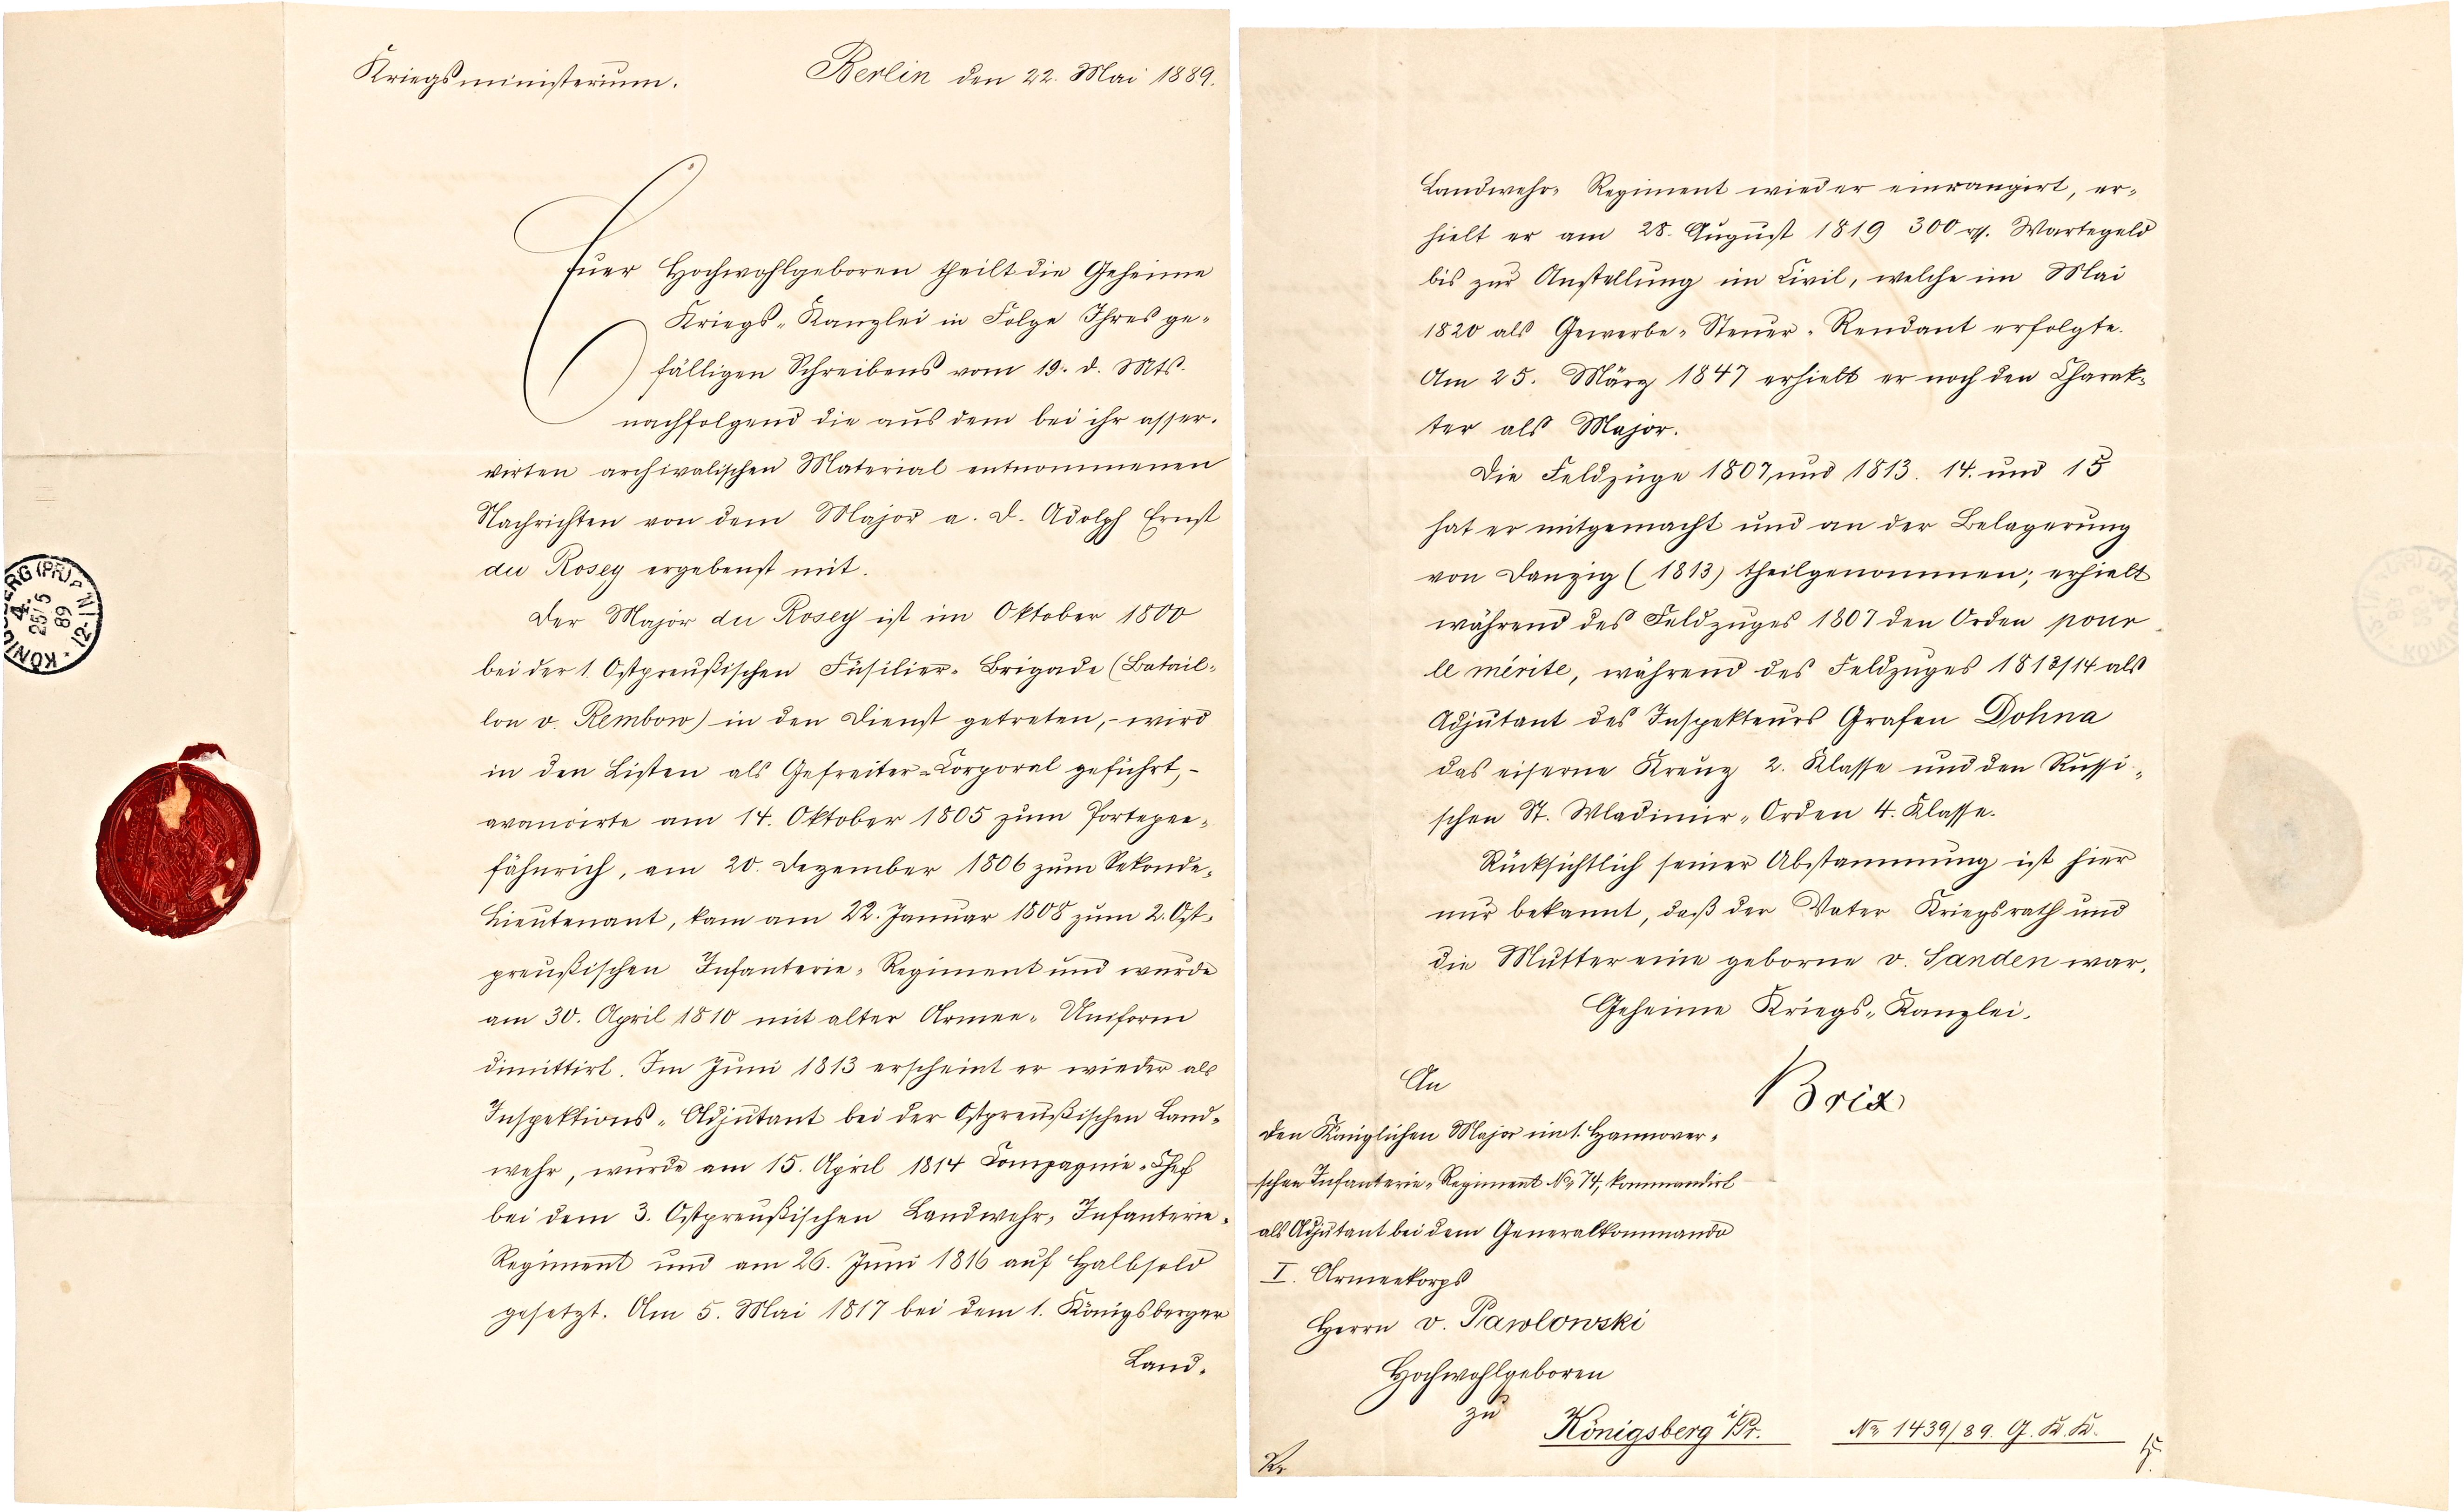 Kriegsministerium.
Berlin den 22. Mai 1889.
Euer Hochwohlgeboren theilt die Geheime
Kriegs-Kanzlei in Folge Ihres ge-
fälligen Schreibens vom 19. d. Mts.
nachfolgend die aus dem bei ihr asser-
virten archivalischen Material entnommenen
Nachrichten von dem Major a. D. Adolph Ernst
du Rosey ergebenst mit.
Der Major du Rosey ist im Oktober 1800
bei der 1. Ostpreußischen Füsilier-Brigade (Batail-
lon v. Rembow) in den Dienst getreten, - wird
in den Listen als Gefreiter-Corporal geführt, -
avancirte am 14. Oktober 1805 zum Portepee-
fähnrich, am 20. Dezember 1806 zum Sekonde-
Lieutenant, kam am 22. Januar 1808 zum 2. Ost-
preußischen Infanterie-Regiment und wurde
am 30. April 1810 mit alter Armee-Uniform
dimittirt. Im Juni 1813 erscheint er wieder als
Inspektions-Adjutant bei der Ostpreußischen Land-
wehr, wurde am 15. April 1814 Compagnie-Chef
bei dem 3. Ostpreußischen Landwehr-Infanterie-
Regiment und am 26. Juni 1816 auf Halbsold
gesetzt. Am 5. Mai 1817 bei dem 1. Königsberger
Land-
Landwehr-Regiment wieder einrangirt, er-
hielt er am 28. August 1819 300 rtl. Wartegeld
bis zur Anstellung im Civil, welche im Mai
1820 als Gewerbe-Steuer-Rendant erfolgte.
Am 25. März 1847 erhielt er noch den Charak-
ter als Major.
Die Feldzüge 1807 und 1813. 14. und 15
hat er mitgemacht und an der Belagerung
von Danzig (1813) theilgenommen; erhielt
während des Feldzuges 1807 den Orden pour
le mérite, während des Feldzuges 1813/14 als
Adjutant des Inspekteurs Grafen Dohna
das eiserne Kreuz 2. Klasse und den Russi-
schen St. Wladimir-Orden 4. Klasse.
Rücksichtlich seiner Abstammung ist hier
nur bekannt, daß der Vater Kriegsrath und
die Mutter eine geborne v. Sanden war.
Geheime Kriegs-Kanzlei.
Brix
An
den Königlichen Major im 1. Hannover-
schen Infanterie-Regiment No 74, kommandirt
als Adjutant bei dem Generalkommando
I. Armeekorps
Herrn v. Pawlowski
Hochwohlgeboren
zu
Königsberg i/Pr.
No 1439/89. G. K. K.
ERG (PR)
25/5
89
12-1N
KÖNIG